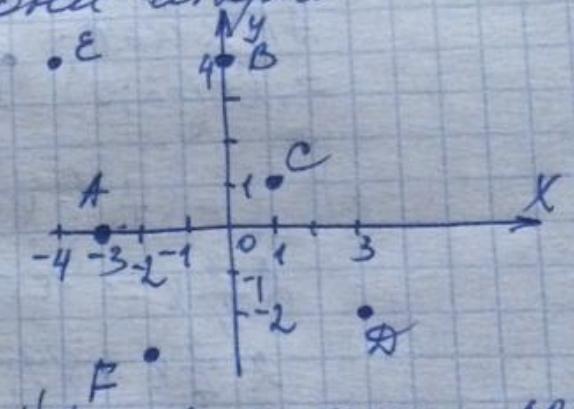 они
E
y
4 B
C
1
A
X
-4 -3 -2 -1 0 1 3
-1
-2
D
F